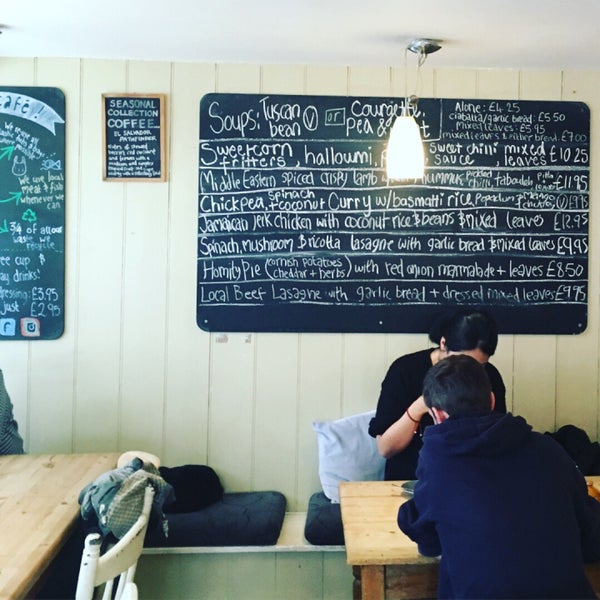 café!
We reuse all
local
meat & fish
whenever we
can.
3/4 of all our
waste is
recycled
free cup &
drinks!
dressing: £3.95
just £2.95
SEASONAL
COLLECTION
COFFEE
EL SALVADOR
PATHFINDER
Soups: Tuscan bean V or Courgette, Pea &
Alone: £4.25
ciabatta/garlic bread: £5.50
Mixed leaves: £5.95
mixed leaves & either bread: £7.00
Sweetcorn fritters, halloumi, sweet chilli sauce mixed leaves £10.25
Middle Eastern spiced crispy lamb hummus pickled chilli, tabouleh, Pitta £11.95
Chickpea, spinach + coconut Curry w/ basmatti rice, Poppadum & chutney V £9.95
Jamaican Jerk chicken with coconut rice & beans & mixed leaves £12.95
Spinach, mushroom & ricotta lasagne with garlic bread & mixed leaves £9.95
Homity Pie (cornish potatoes cheddar + herbs) with red onion marmalade + leaves £8.50
Local Beef Lasagne with garlic bread + dressed mixed leaves £9.95